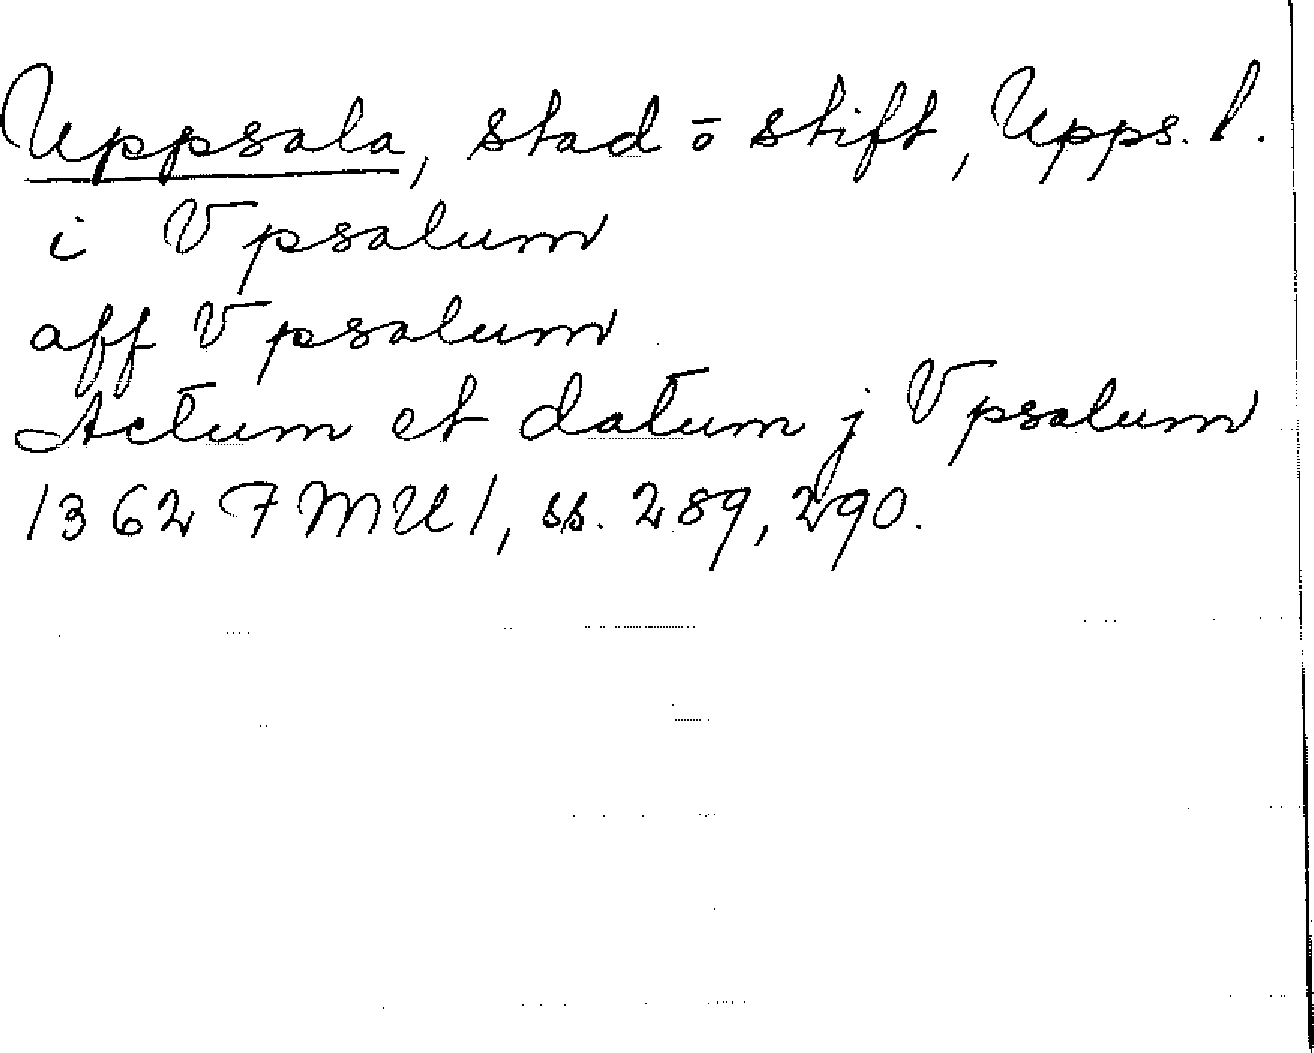 Uppsala, stad ō stift, Upps. l.
i Vpsalum
aff Vpsalum
Actum et datum j Vpsalum
1362 FMU 1, ss. 289, 290.